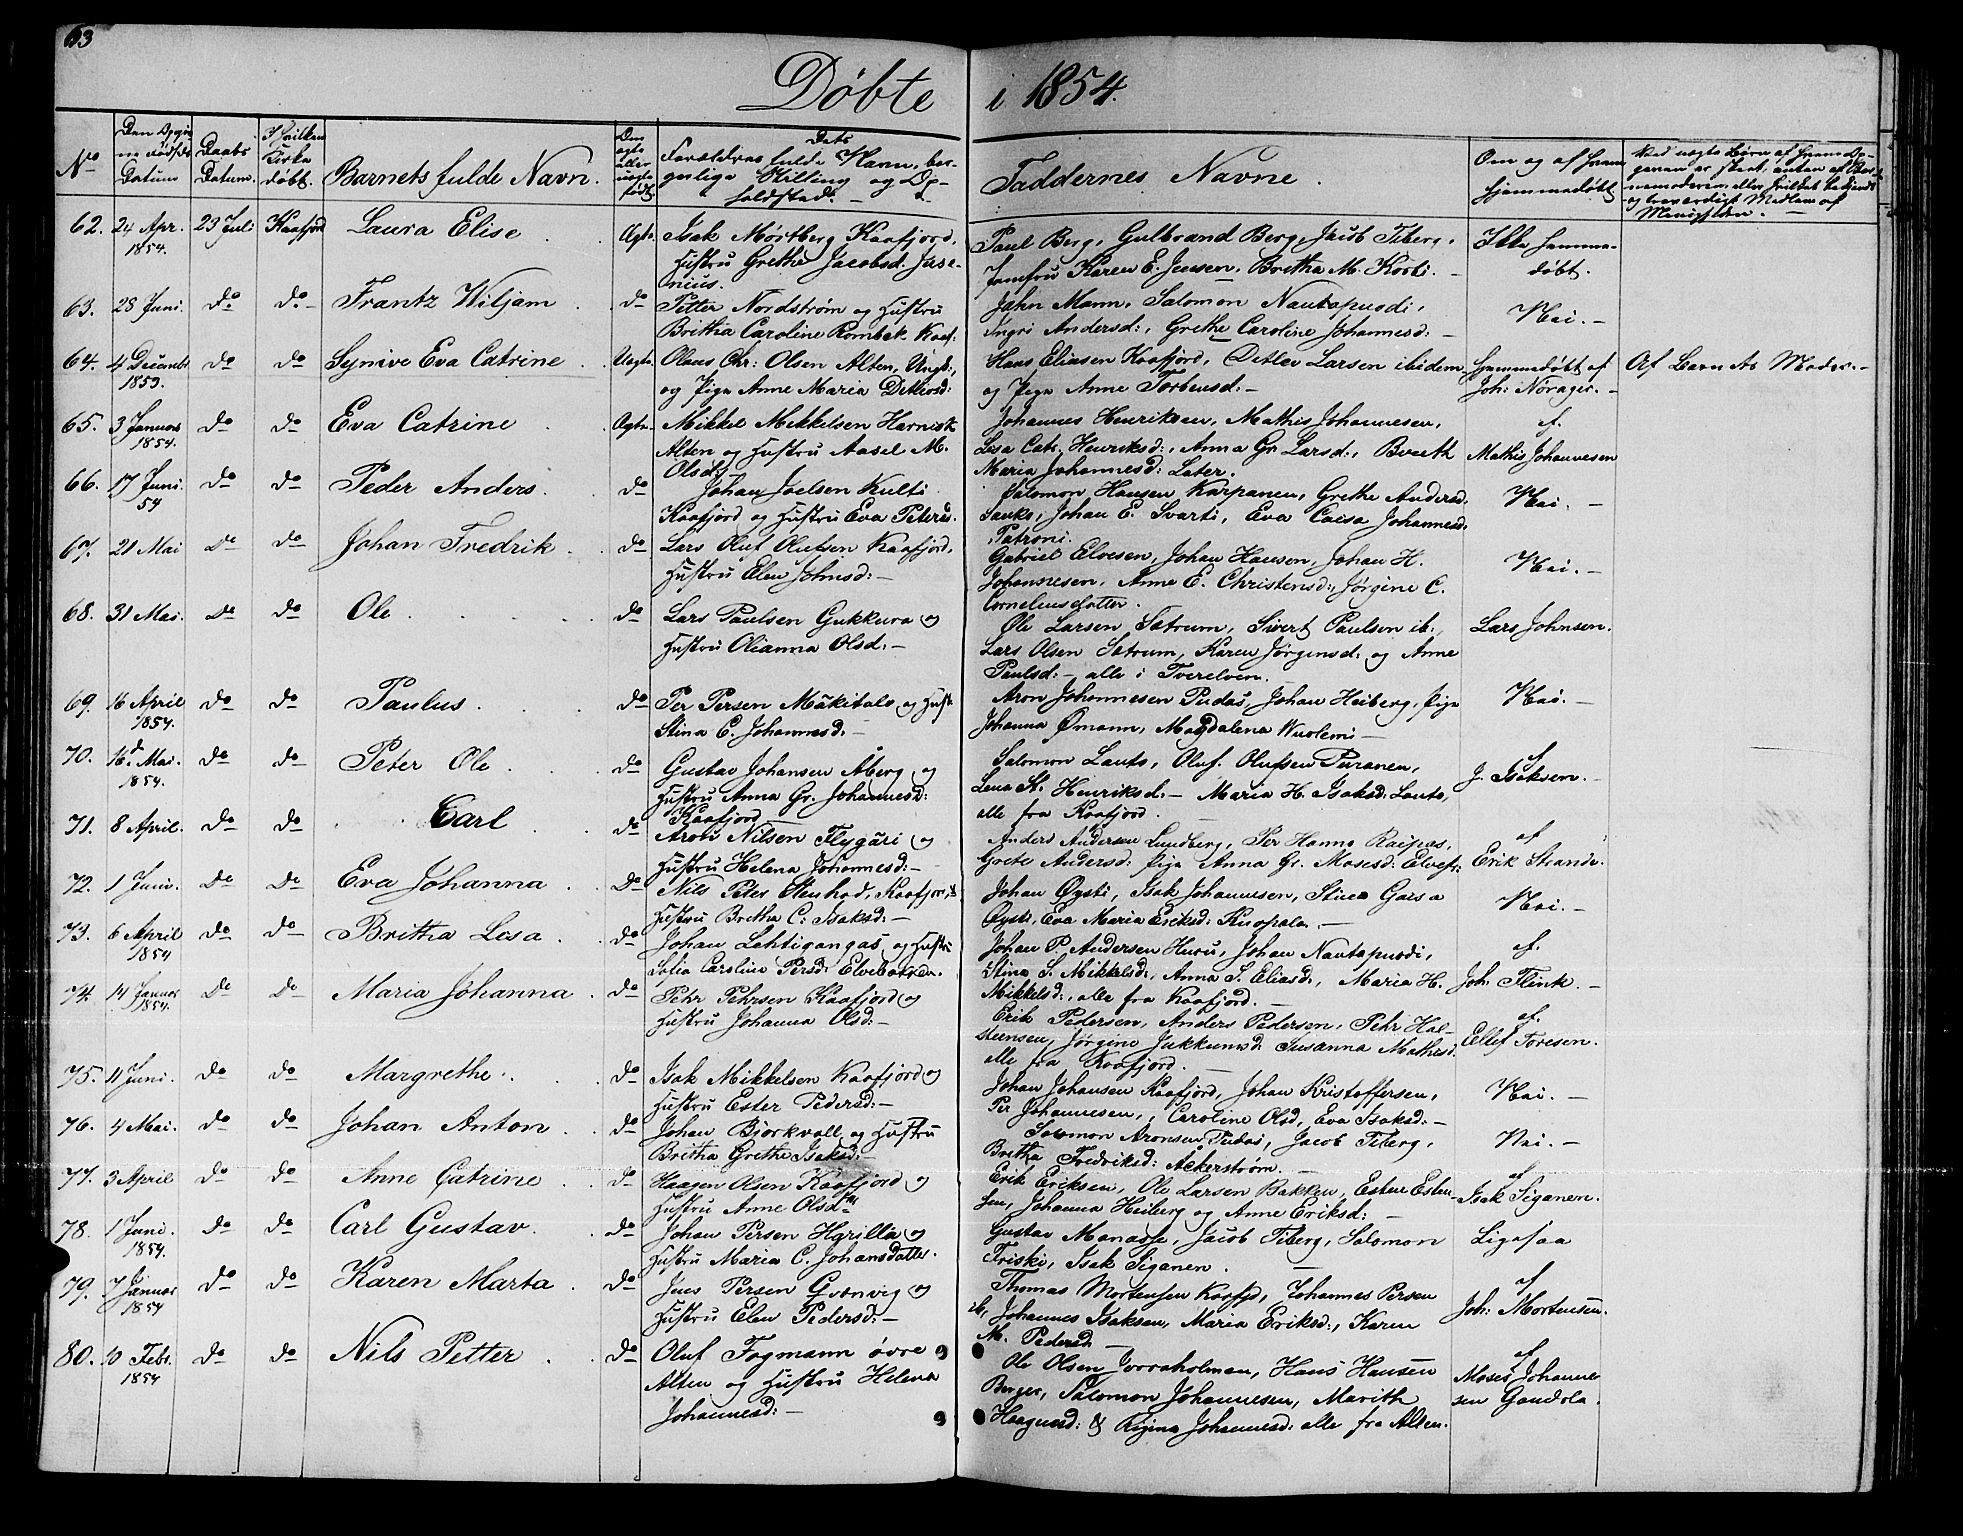 63
Døbte i 1854.
No
Den Opgiv
ne Fødsels
Datum
Daabs
Datum.
I hvilken
Kirke
døbt.
Barnets fulde Navn.
Om
ægte
eller
uægte
født
Dets
Forældres fulde Navn, bor-
gerlige Stilling og Op-
holdsted. -
Faddernes Navne.
Om og af hvem
hjemmedøbt
62. 24 Apr. 1854. 23 Juli Kaafjord Laura Elise Ægte. Isak Mørtberg Kaafjord,
Hustru Grethe Jacobsd. Juse-
nius.
Paul Berg, Gulbrand Berg, Jacob Fiberg,
Jomfru Karen E. Jensen, Bretha M. Korti. -
Ikke hjemme-
døbt.
63. 28 Juni. do do Frantz Wiljam do Petter Nordstrøm og Hustru
Britha Caroline Rombek Kaafj:
John Mann, Salomon Nautapuodi,
Ingri Andersd:, Grethe Caroline Johannesd: -
Nei. -
64. 4 Decembr 1853. do do Synive Eva Catrine Uægte. Olaus Chr: Olsen Alten, Ungk:,
og Pige Anne Maria Detlevsd:
Hans Eliasen Kaafjord, Detlev Larsen ibidem
og Pige Anne Torbensd: -
Hjemmedøbt af
Joh: Nørager. -
Af Barnets Moder. -
65. 3 Januar 1854. do do Eva Catrine Ægte. Mikkel Mikkelsen Harnisk
Alten og Hustru Aasel M.
Olsdt.
Johannes Henriksen, Mathis Johannesen,
Lisa Cat. Henriksd:, Anna Gr. Larsd:, Bereth
Maria Johannesd: Later.
af.
Mathis Johannesen
66. 17 Juni. 54 do do Peder Anders. do Johan Joelsen Kulti
Kaafjord og Hustru Eva Petersd.
Salomon Hansen Karpanen, Grethe Andersd.
Sauko, Johan E. Svarti, Eva Caisa Johannesd.
Patroni.
Nei. -
67. 21 Mai do do Johan Fredrik do Lars Oluf Olufsen Kaafjord,
Hustru Elen Johnsd: -
Gabriel Elvesen, Johan Hansen, Johan H.
Johannesen, Anne E. Christensd:, Jørgine C.
Corneliusdatter.
Nei. -
68. 31 Mai. do do Ole do Lars Paulsen Gukkura og
Hustru Olianna Olsd: -
Ole Larsen Sætrum, Sivert Paulsen ib:,
Lars Olsen Sætrum, Karen Jørgensd: og Anne
Paulsd: - alle i Tverelven. -
Lars Johnsen.
69. 16 April 1854. do do Paulus. do Per Persen Mäkitalo og Hust
Stina C. Johannesd. -
Aron Johannesen Pudas, Johan Heiberg, Pige
Johanna Ømann, Magdalena Wuolemi -
Nei. -
70. 16d Mai. 1854. do do Peter Ole do Gustav Johansen Åberg og
Hustru Anna Gr. Johannesd:
Kaafjord
Salomon Lauto, Oluf Olufsen Puranen,
Lena St. Henriksd: - Maria H. Isaksd: Lauto,
alle fra Kaafjord.
af
J. Isaksen. -
71. 8 April. do do Carl do Aron Nilsen Flygäri og
Hustru Helena Johannesd: -
Anders Andersen Lundberg, Per Hanno Raipas,
Grete Andersd: Pige Anna Gr. Mosesd: Elvefr:
af
Erik Strande.
72. 1 Juni. do do Eva Johanna do Nils Peter Stenhod, Kaafjord,
Hustru Bretha C. Isaksd: -
Johan Øysti, Isak Johannesen, Stina Gaisa
Øysti, Eva Maria Eriksd: Kuopala. -
Nei. -
73. 6 April 1854 do do Britha Lisa do Johan Lehtigangas og Hustru
Sofia Caroline Persd: Elvebakken.
Johan P. Andersen Huru, Johan Nautapuodi,
Stina S. Mikkelsd:, Anna S. Eliasd:, Maria H.
Mikkelsd:, alle fra Kaafjord. -
af.
Joh: Flink. -
74. 14 Januar 1854. do do Maria Johanna do Pehr Pehrsen Kaafjord og
Hustru Johanna Olsd: -
Erik Pedersen, Anders Pedersen, Pehr Hal-
steensen, Jørgine Jukkumsd. Susanna Mathisd.
alle fra Kaafjord. -
af.
Ellef Toresen.
75. 11 Juni. do do Margrethe. do Isak Mikkelsen Kaafjord og
Hustru Ester Pedersd: -
Johan Johansen Kaafjord, Johan Kristoffersen,
Per Johannesen, Caroline Olsd, Eva Isaksd: -
Nei. -
76. 4 Mai. do do Johan Anton do Johan Bjorkvall og Hustru
Britha Grethe Isaksd: -
Salomon Aronsen Pudas, Jacob Fiberg,
Bretha Fredriksd: Ackerstrøm. -
Nei. -
77. 3 April do do Anne Catrine do Haagen Olsen Kaafjord og
Hustru Anne Olsd
Erik Eriksen, Ole Larsen Bakken, Esten Esten-
sen, Johanna Heiberg og Anne Eriksd: -
af
Isak Siganen.
78. 1 Juni. 1854. do do Carl Gustav. do Johan Persen Hgrilla og
Hustru Maria C. Johansdatter.
Gustav Manasse, Jacob Fiberg, Salomon
Friski, Isak Siganen.
Ligesaa
79. 7 Januar 1854 do do Karen Marta do Jens Persen Qvænvig og
Hustru Elen Pedersd: -
Thomas Mortensen Kaafjd, Johannes Persen
ib, Johannes Isaksen, Maria Eriksd:, Karen
M. Pedersd. -
af
Joh: Mortensen.
80. 10 Febr. 1854 do do Nils Petter do Oluf Fogmann øvre
Alten og Hustru Helena
Johannesd: -
Ole Olsen Jorraholmen, Hans Hansen
Berger, Salomon Johannesen, Marith
Haagensd: & Regina Johannesd: alle fra Alten.
af
Moses Johanne
sen Gandola.